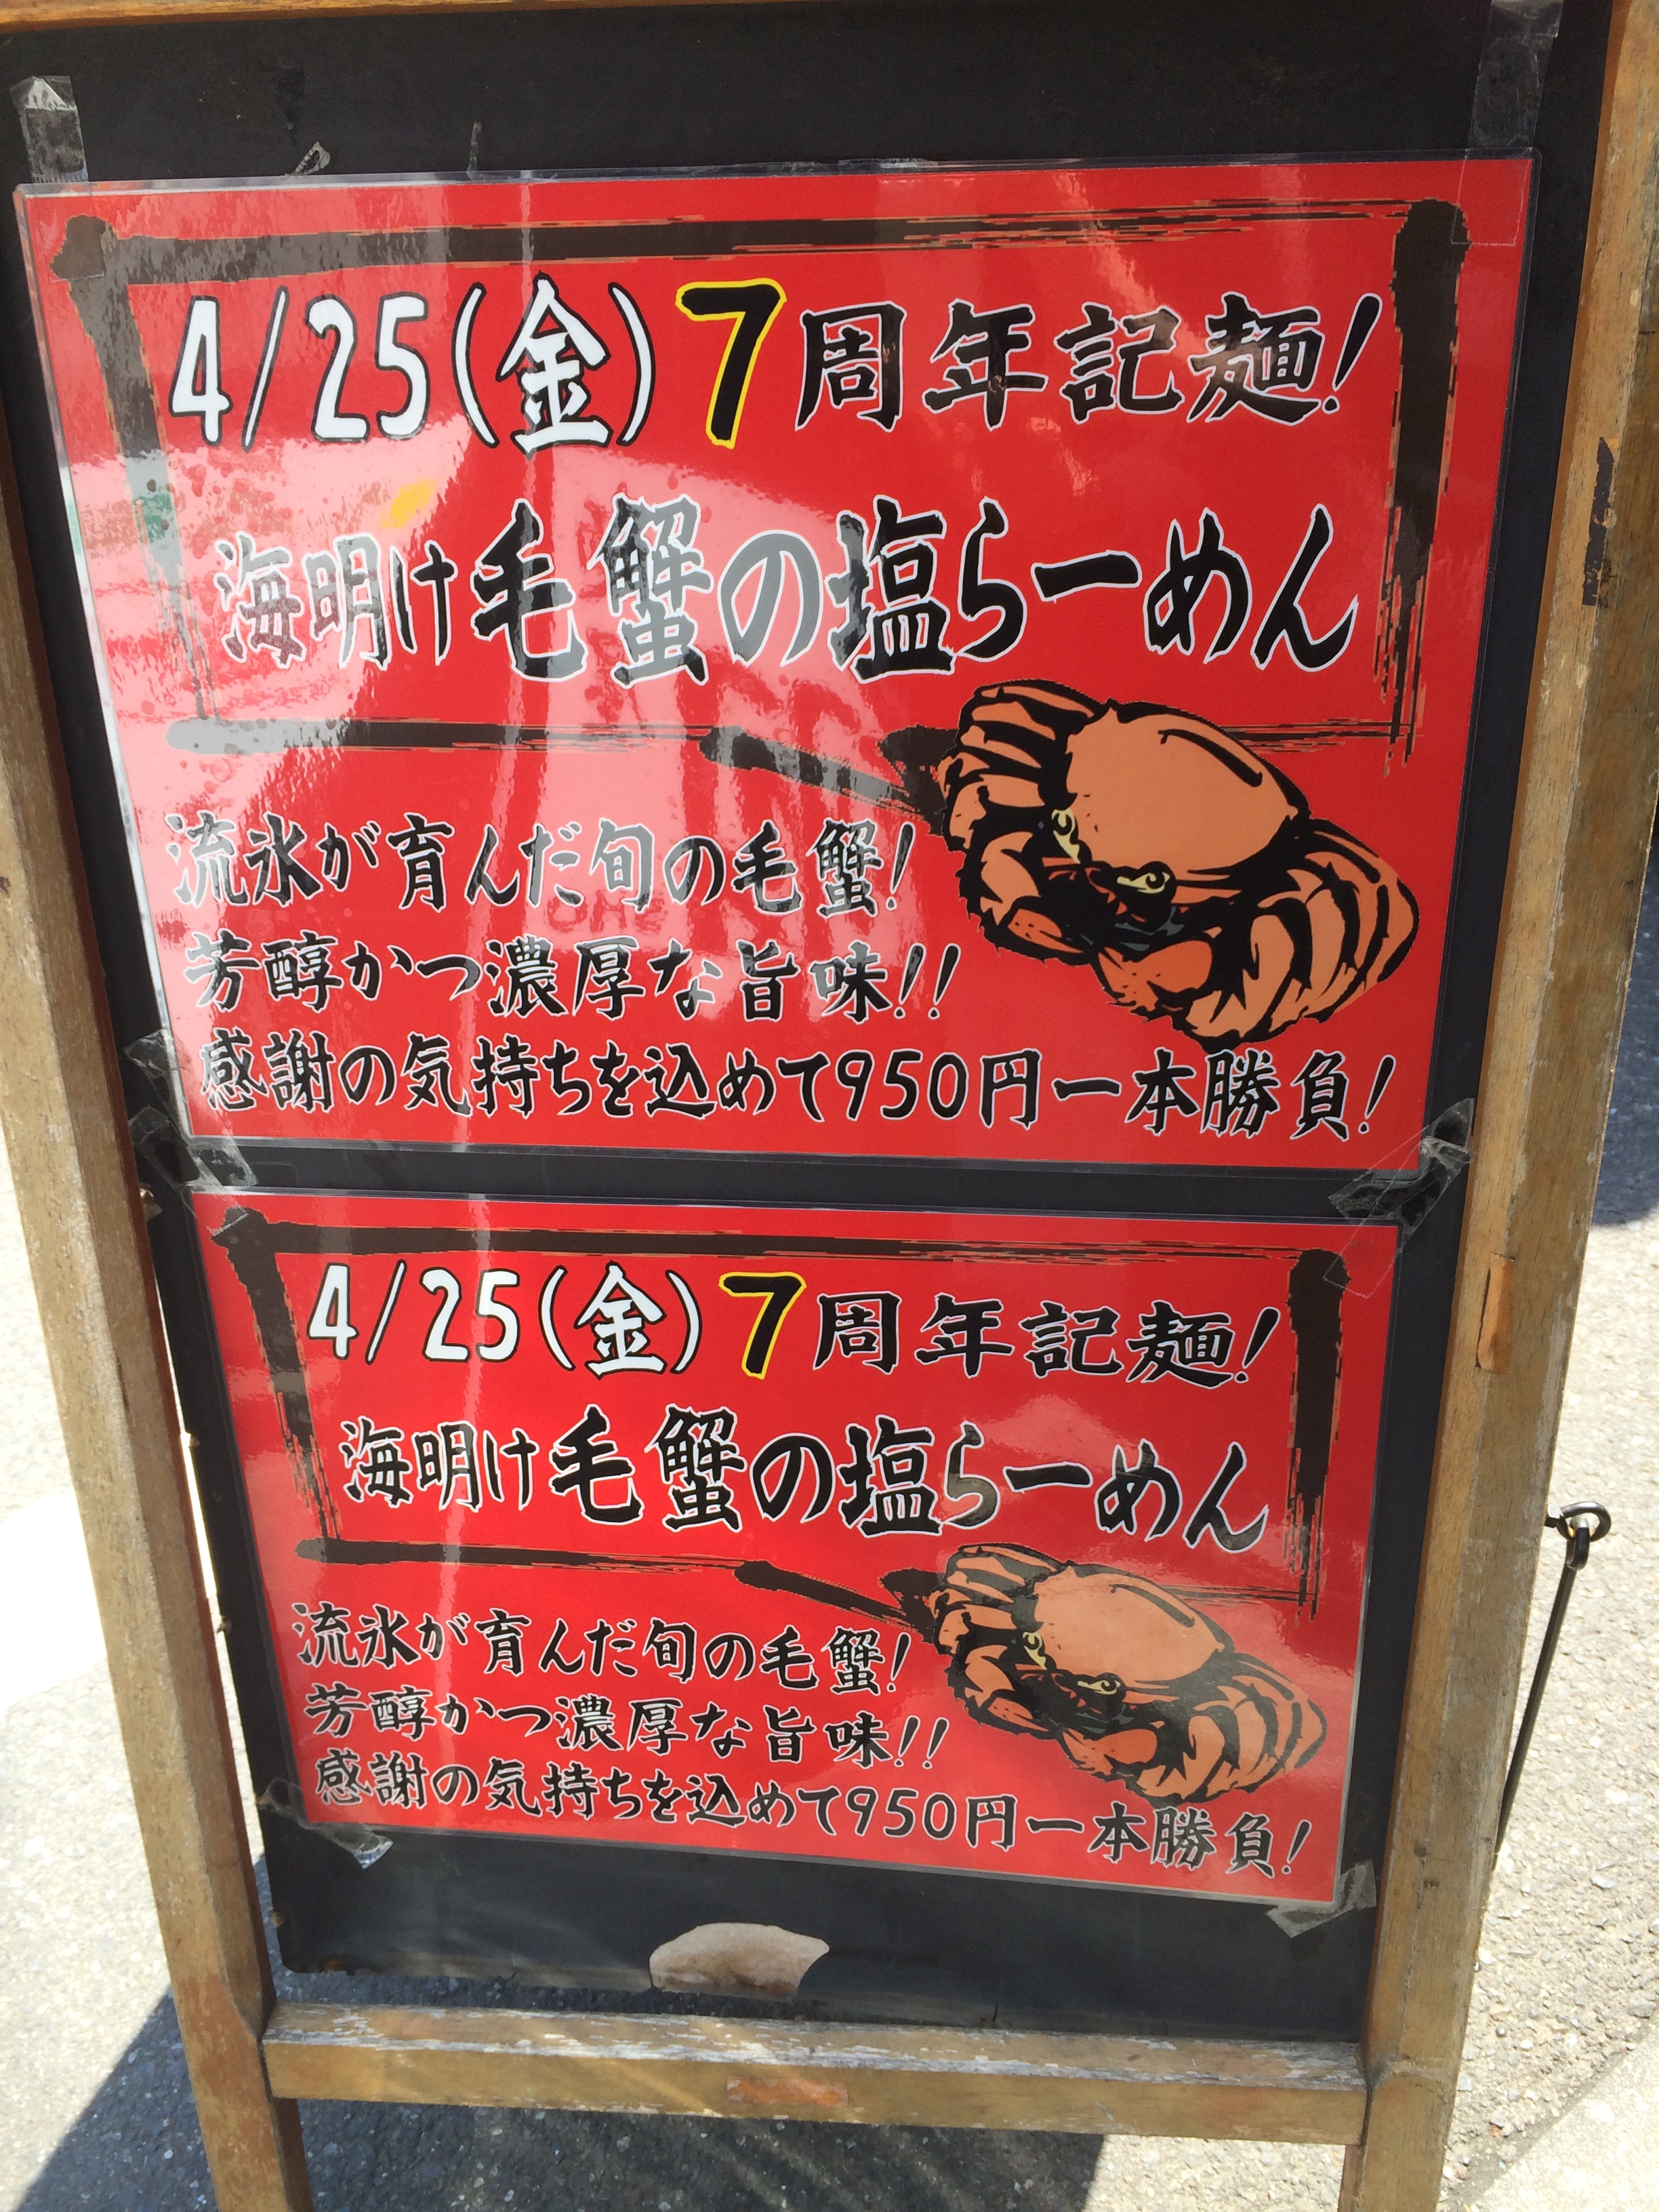 4/25(金)7周年記麺!
海明け毛蟹の塩らーめん
流氷が育んだ旬の毛蟹!
芳醇かつ濃厚な旨味!!
感謝の気持ちを込めて950円一本勝負!
4/25(金)7周年記麺!
海明け毛蟹の塩らーめん
流氷が育んだ旬の毛蟹!
芳醇かつ濃厚な旨味!!
感謝の気持ちを込めて950円一本勝負!